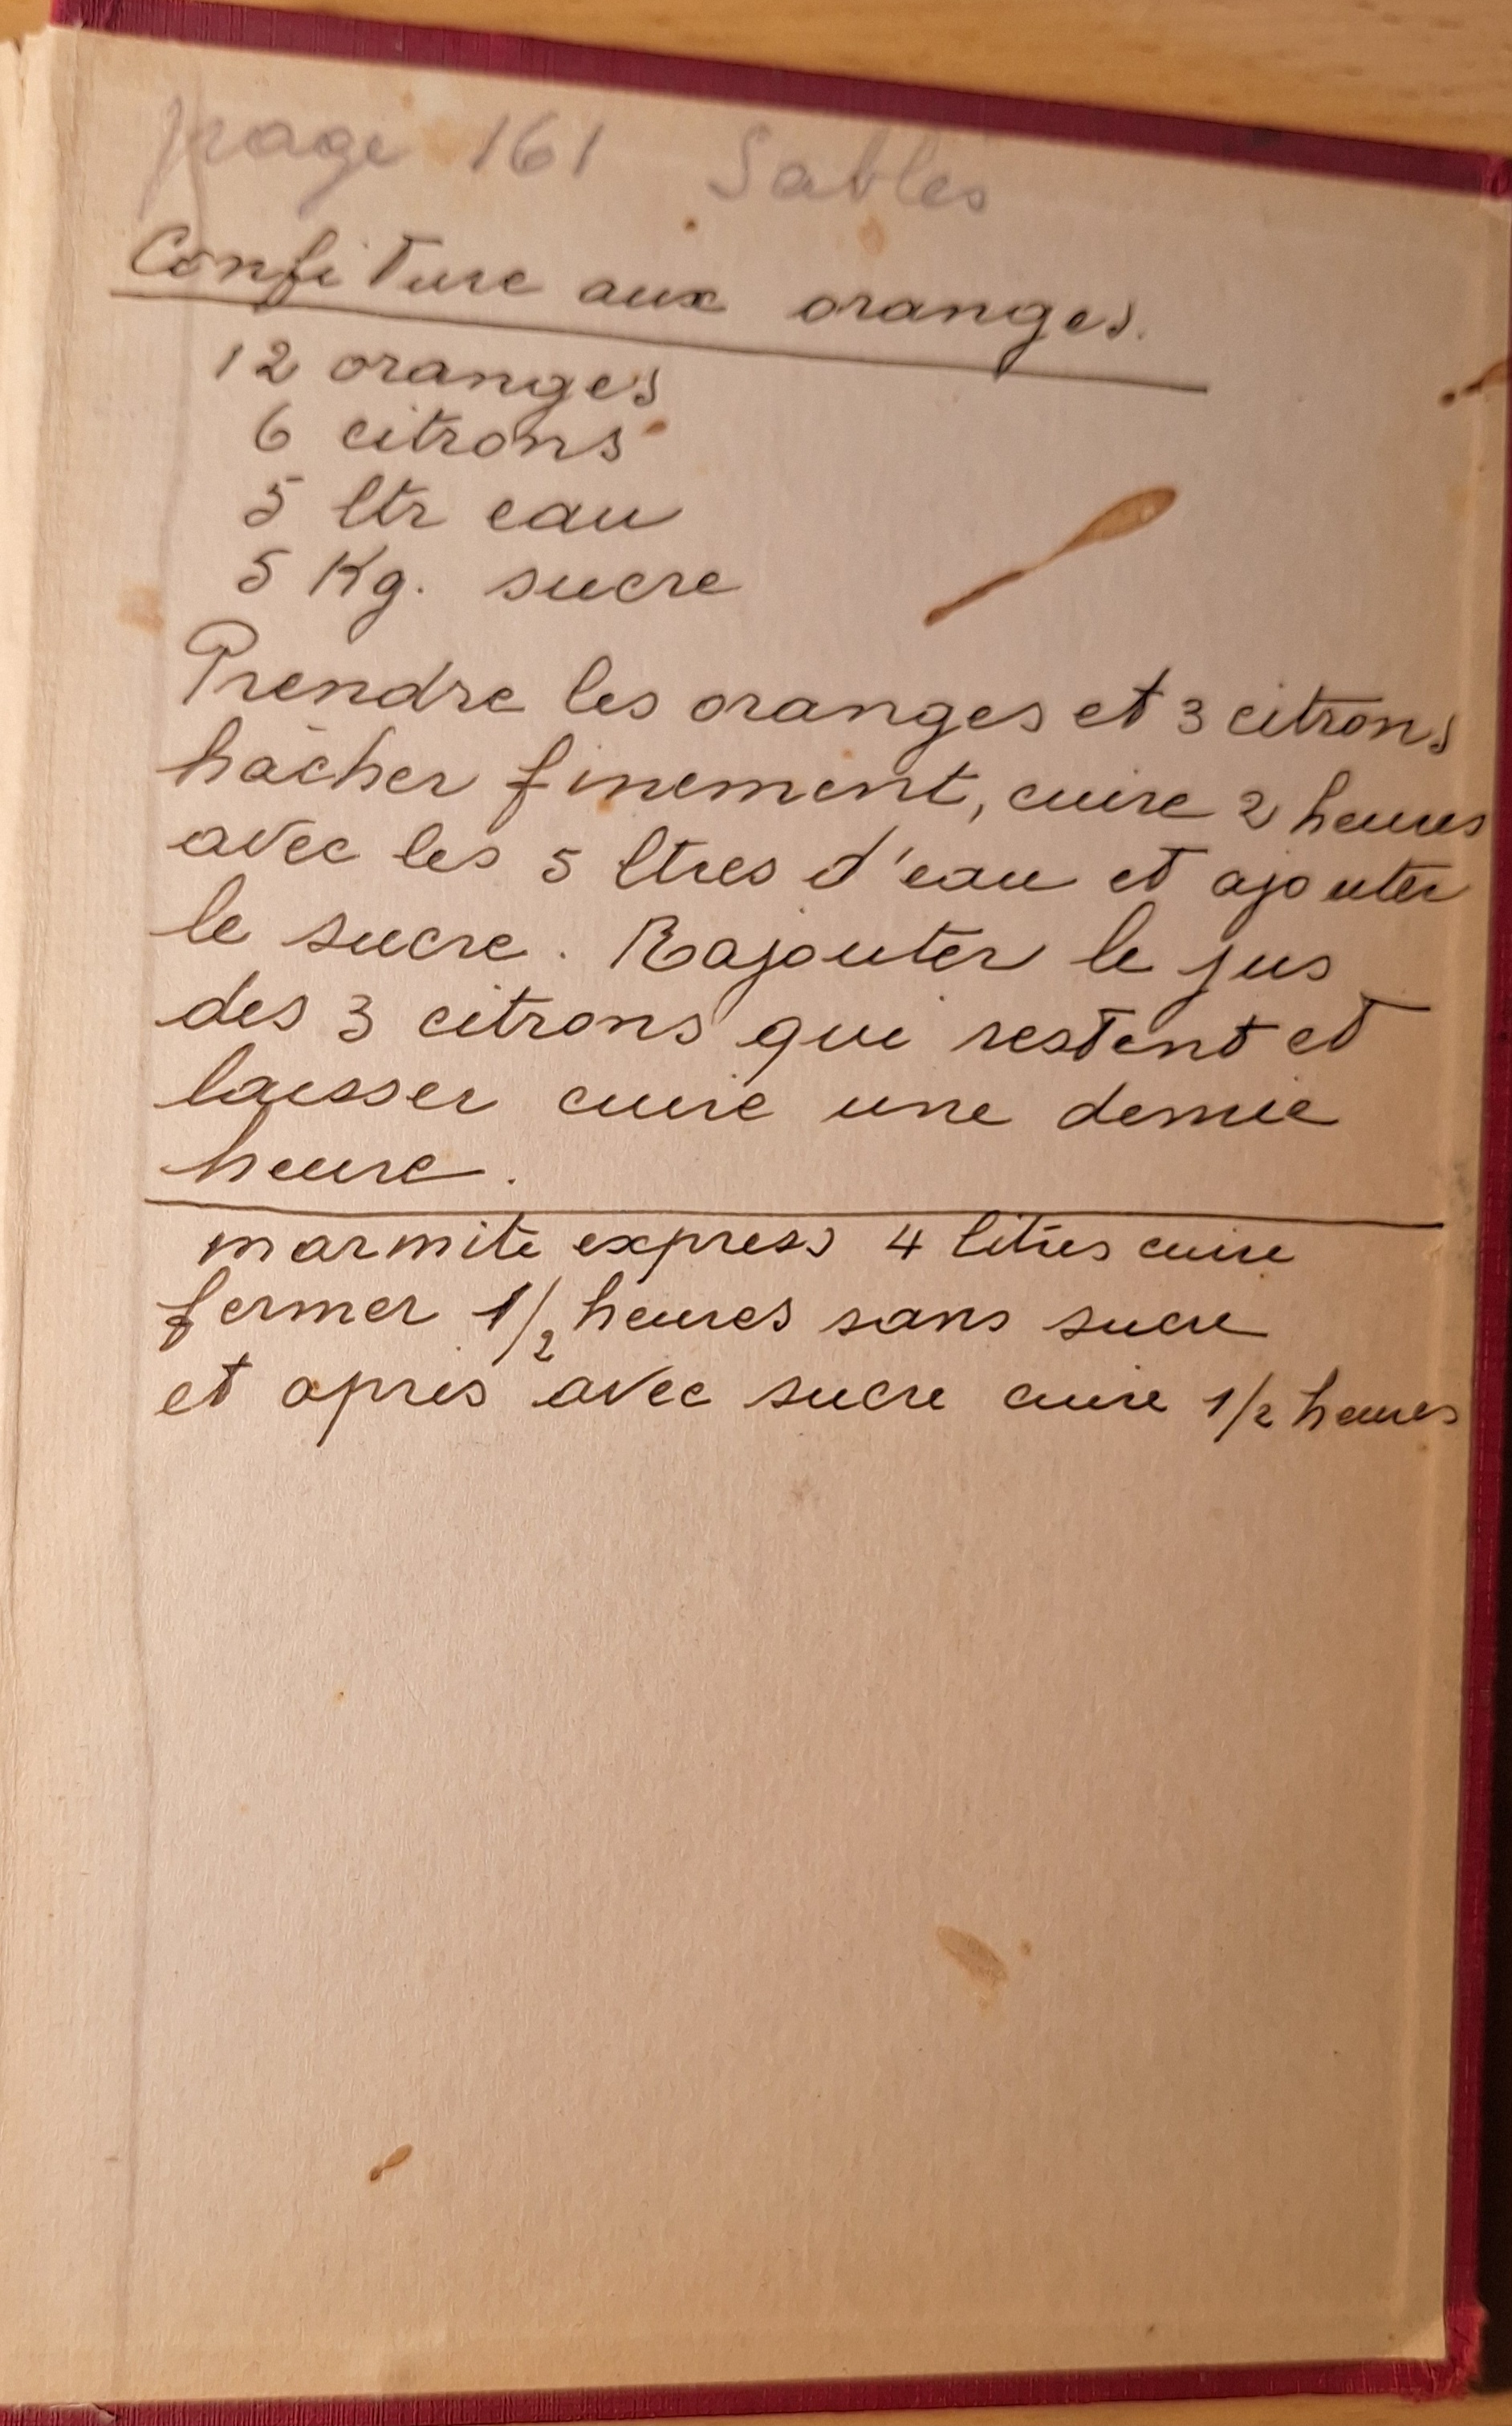 page 161 Sablés
Confiture aux oranges.
12 oranges
6 citrons
5 ltr eau
5 Kg. sucre
Prendre les oranges et 3 citrons
hâcher finement, cuire 2 heures
avec les 5 ltres d'eau et ajouter
le sucre. Rajouter le jus
des 3 citrons qui restent et
laisser cuire une demie
heure.
marmite express 4 litres cuire
fermer 1/2 heures sans sucre
et après avec sucre cuire 1/2 heures